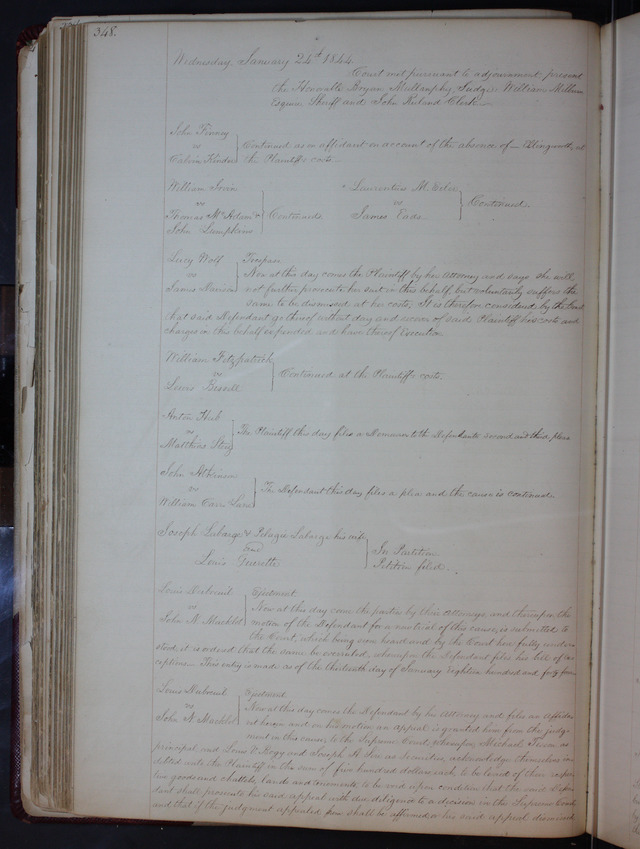 348.
Wednesday January 24th 1844.
Court met pursuant to adjournment present
the Honorable Bryan Mullanphy Judge. William Milburn
Esquire Sheriff and John Ruland Clerk.
John Finney
vs
Calvin Kinder
Continued as on affidavit on account of the absence of Illingworth, at
the Plaintiffs costs
William Irvin
vs
Thomas McAdam &
John Lumpkins
Continued
Laurentius M. Eiler
vs
James Eads
Continued.
Lucy Wolf
vs
James
Trespass
Now at this day comes the Plaintiff by her Attorney and says she will
not further prosecute her suit in this behalf, but voluntarily suffers the
same to be dismissed at her costs; It is therefore considered by the Court
that said Defendant go thereof without day and recover of said Plaintiff his costs and
charges in this behalf expended and have thereof Execution
William Fitzpatrick
vs
Lewis Bissell
Continued at the Plaintiffs costs.
Anton Hub
vs
Matthias
The Plaintiff this day files a Demurrer to the Defendants second and third pleas
John Atkinson
vs
William Carr Lane
The Defendant this day files a plea and the cause is continued
Joseph Labarge & Pelagie Labarge his wife
and
Louis Guerette
In Partition
Petition filed.
Louis Dubreuil
vs
John N. Macklot
Ejectment
Now at this day come the parties by their Attorneys, and thereupon the
motion of the Defendant for a new trial of this cause, is submitted to
the Court, which being seen heard and by the Court here fully under-
stood, it is ordered that the same be overruled, whereupon the Defendant files his bill of ex
ceptions. This entry is made as of the thirteenth day of January Eighteen hundred and forty four
Louis Dubreuil
vs
John N. Macklot
Ejectment
Now at this day comes the Defendant by his Attorney and files an Affida
vit herein and on his motion an appeal is granted him from the judg-
ment in this cause, to the Supreme Court, whereupon Michael as
principal and Louis V. Bogy and Joseph A. as Securities, acknowledge themselves in
debted unto the Plaintiff in the sum of five hundred dollars each to be levied of their respec
tive goods and chattels, lands and tenements, to be void upon condition that the said Defen
dant shall prosecute his said appeal with due diligence to a decision in the Supreme Court
and that if the judgment appealed from shall be affirmed or his said appeal dismissed